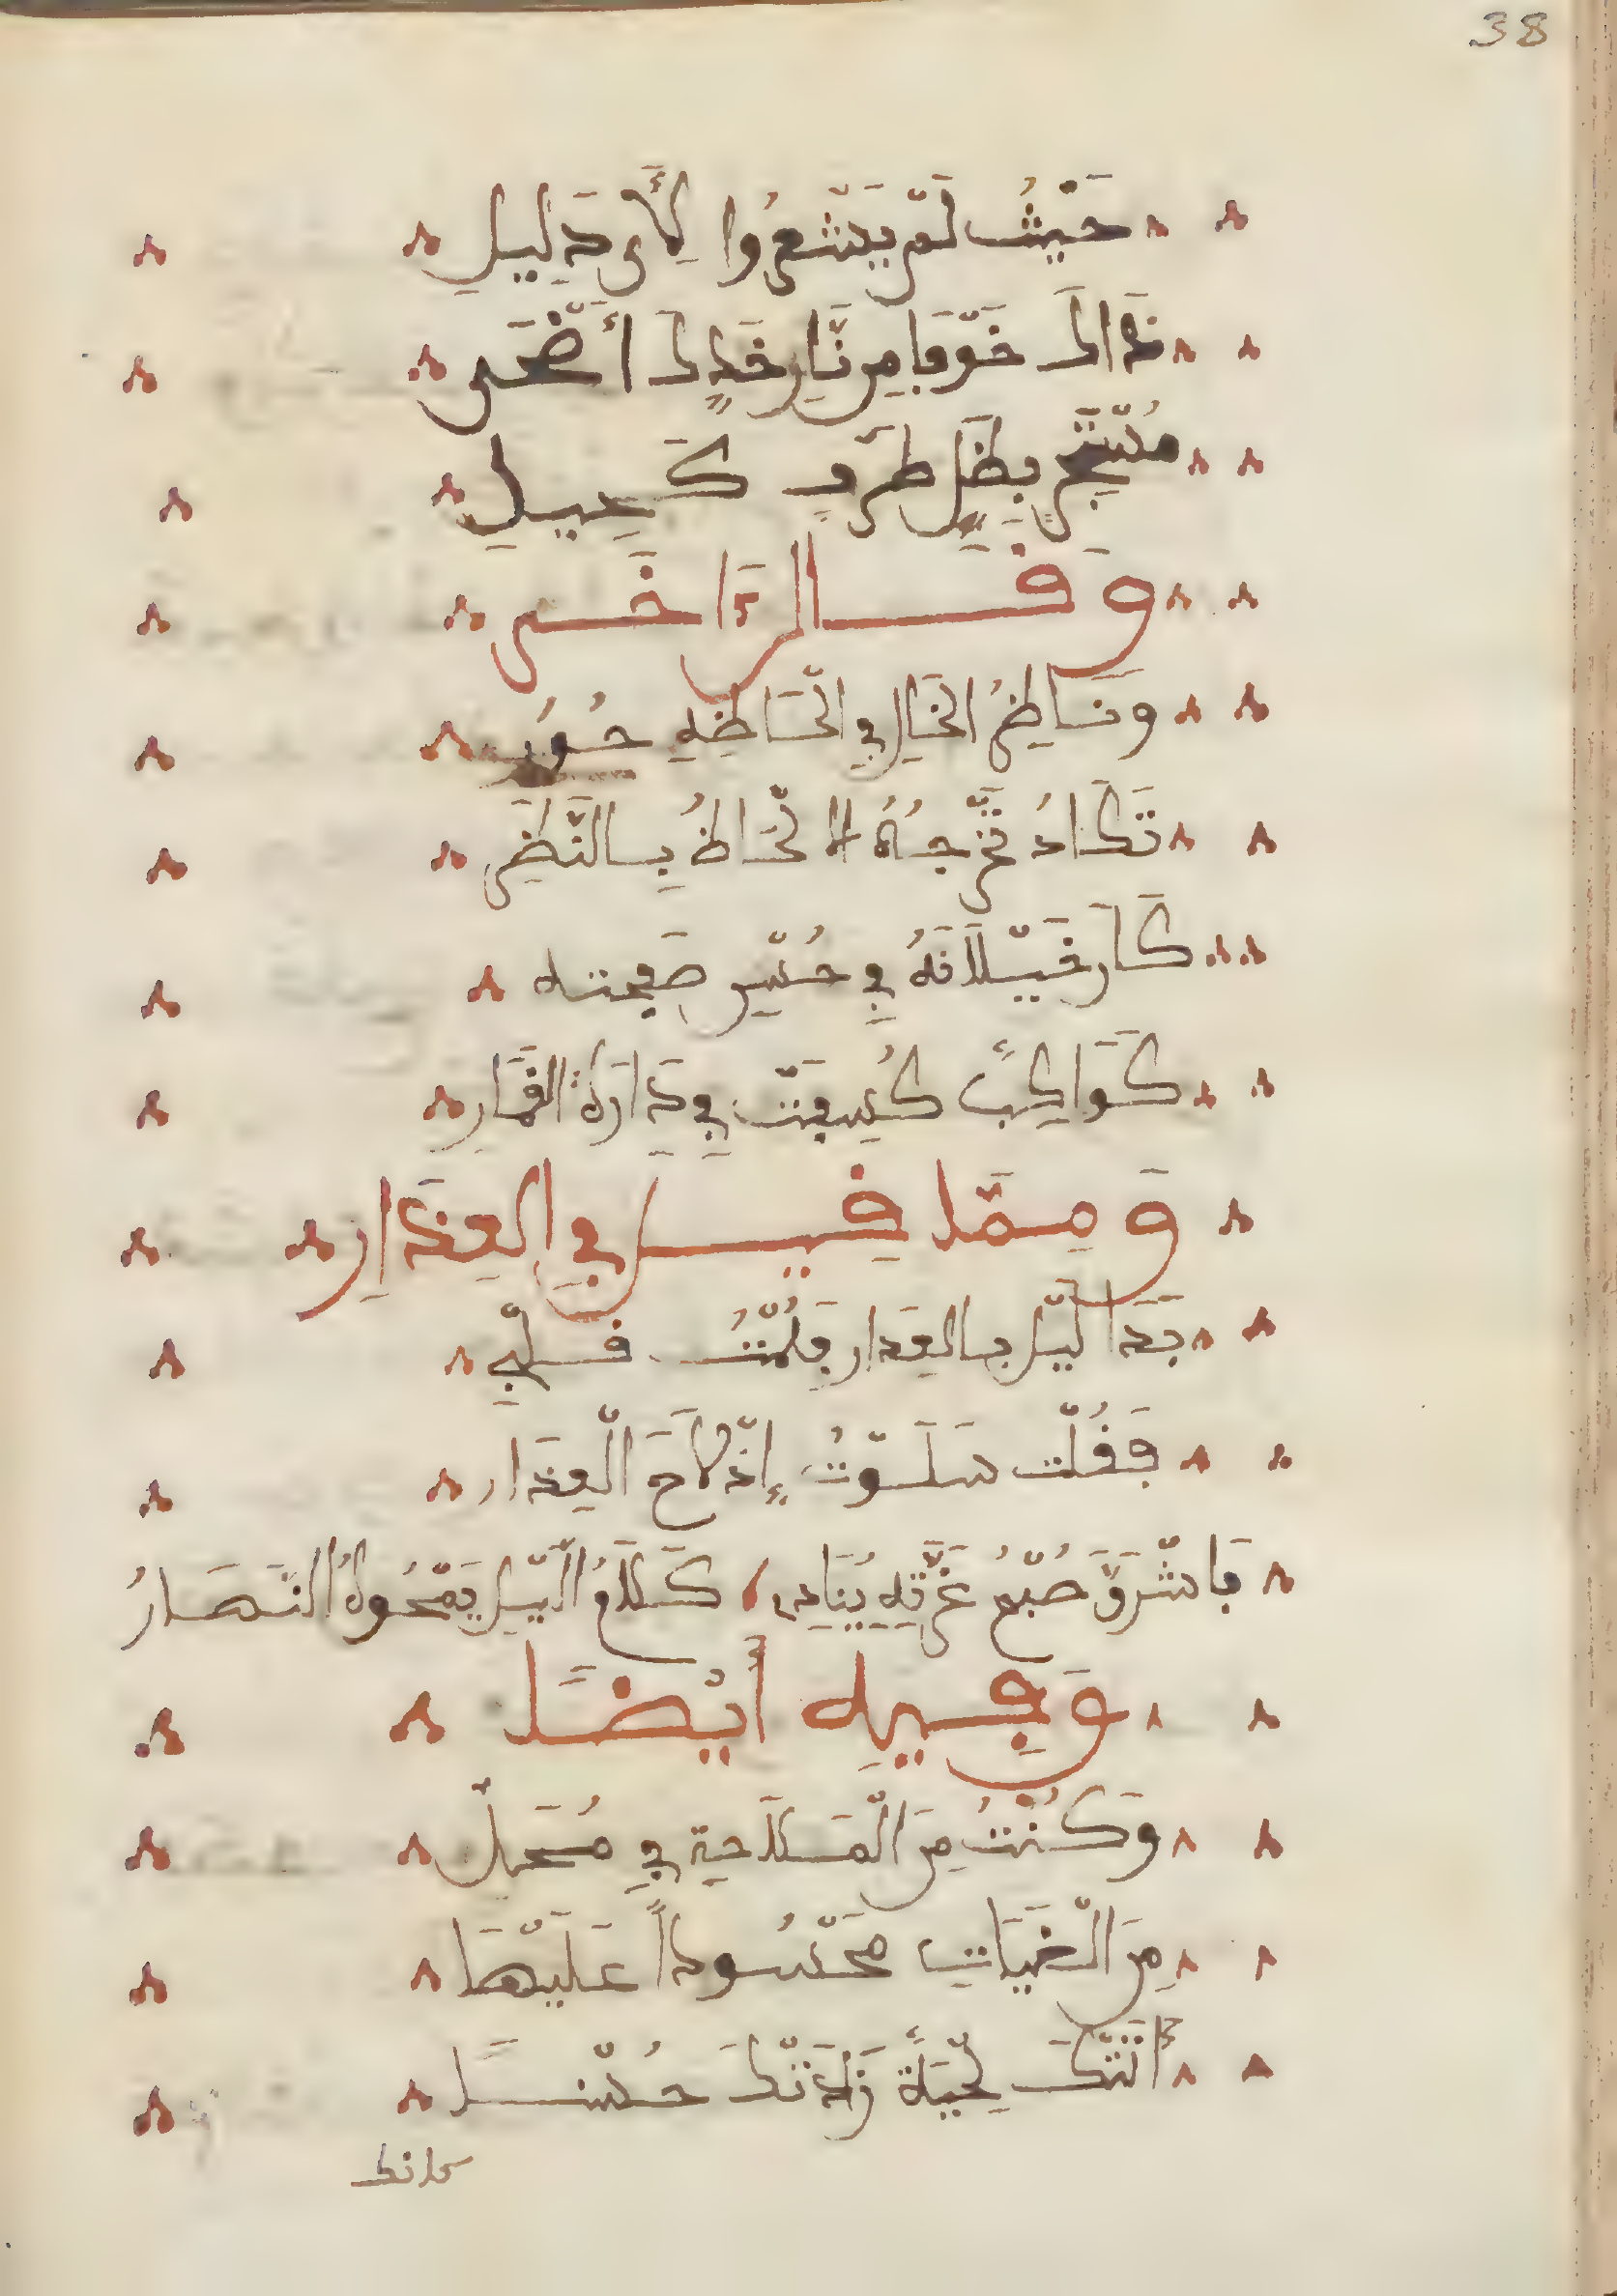 38
حَيْثُ لَمْ يَشْعُرُوا لِأَىِ دَلِيلِ
ذَاكَ خَوْفًا مِن نَّارِ خَدِّكَ أَضْحَى
مُسْتَجِيرٍ بِظِلِّ طَرْفٍ كَحِيلِ
وَقَالَ ءَاخَر
وَنَاظِرُ الخَالِ فِي الْحَاظِهِ حُورُ
تَكَادُ تَجْرَحُهُ الْحَاظُ بِالنَّظَرِ
كَأَن خَيْلَانَهُ فِي حُسْنِ صَفحته
كَوَاكِبٌ كُسِفَتْ فِي دَارَةِ القَمَرِ
وَمِمَّا قِيلَ فِي العِذَارِ
بَدَا لَيْل بالعِذار فَلُمْتُ قلْبِي
فَقُلْت سَلَوْتُ إِذْ لَاحَ الْعِذَار
فَاشْرَقَ صُبْحُ غُرَّتِهِ يُنَادِي كَلَامُ الَّيْلِ يَمْحُوهُ النَّهَارُ
وَفِيهِ أَيْضًا
وَكُنْتُ مِنَ الْمَلَاحَةِ فِي مُحَلٍّ
مِنَ الْغَيَاتِ مَحْسُودًا عَلَيْهَا
أَتَتْكَ لِحْيَةٌ زَادَتْكَ حُسْنًا
كانك